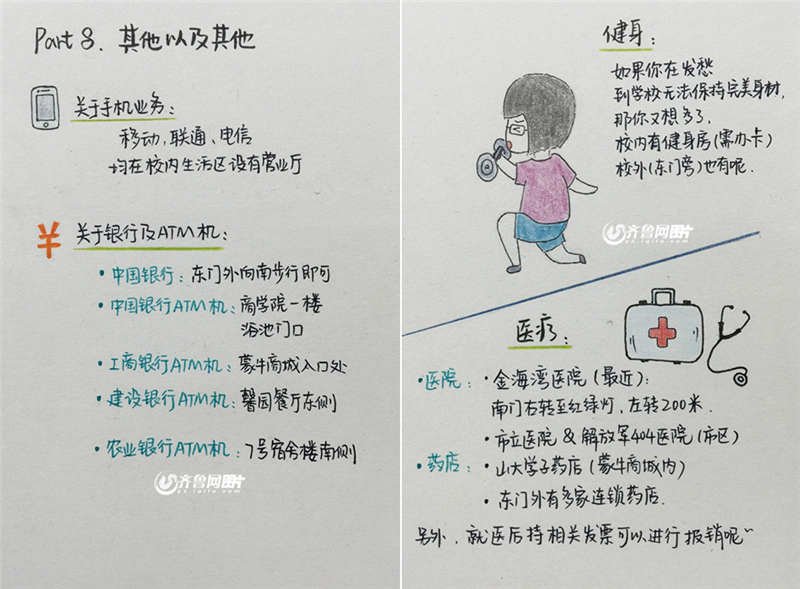 Part 8. 其他以及其他
关于手机业务:
移动,联通、电信
均在校内生活区设有营业厅
¥ 关于银行及ATM机:
·中国银行:东门外向南步行即可
·中国银行ATM机:商学院一楼
浴池门口
·工商银行ATM机:蒙牛商城入口处
·建设银行ATM机:馨园餐厅东侧
·农业银行ATM机:7号宿舍楼南侧
齐鲁网图片
健身:
如果你在发愁
到学校无法保持完美身材,
那你又想多了.
校内有健身房(需办卡)
校外(东门旁)也有呢.
齐鲁网图片
医疗:
·医院:·金海湾医院(最近):
南门右转至红绿灯,左转200米.
·市立医院 & 解放军404医院(市区)
·药店:·山大学子药店(蒙牛商城内)
·东门外有多家连锁药店.
另外,就医后持相关发票可以进行报销呢~